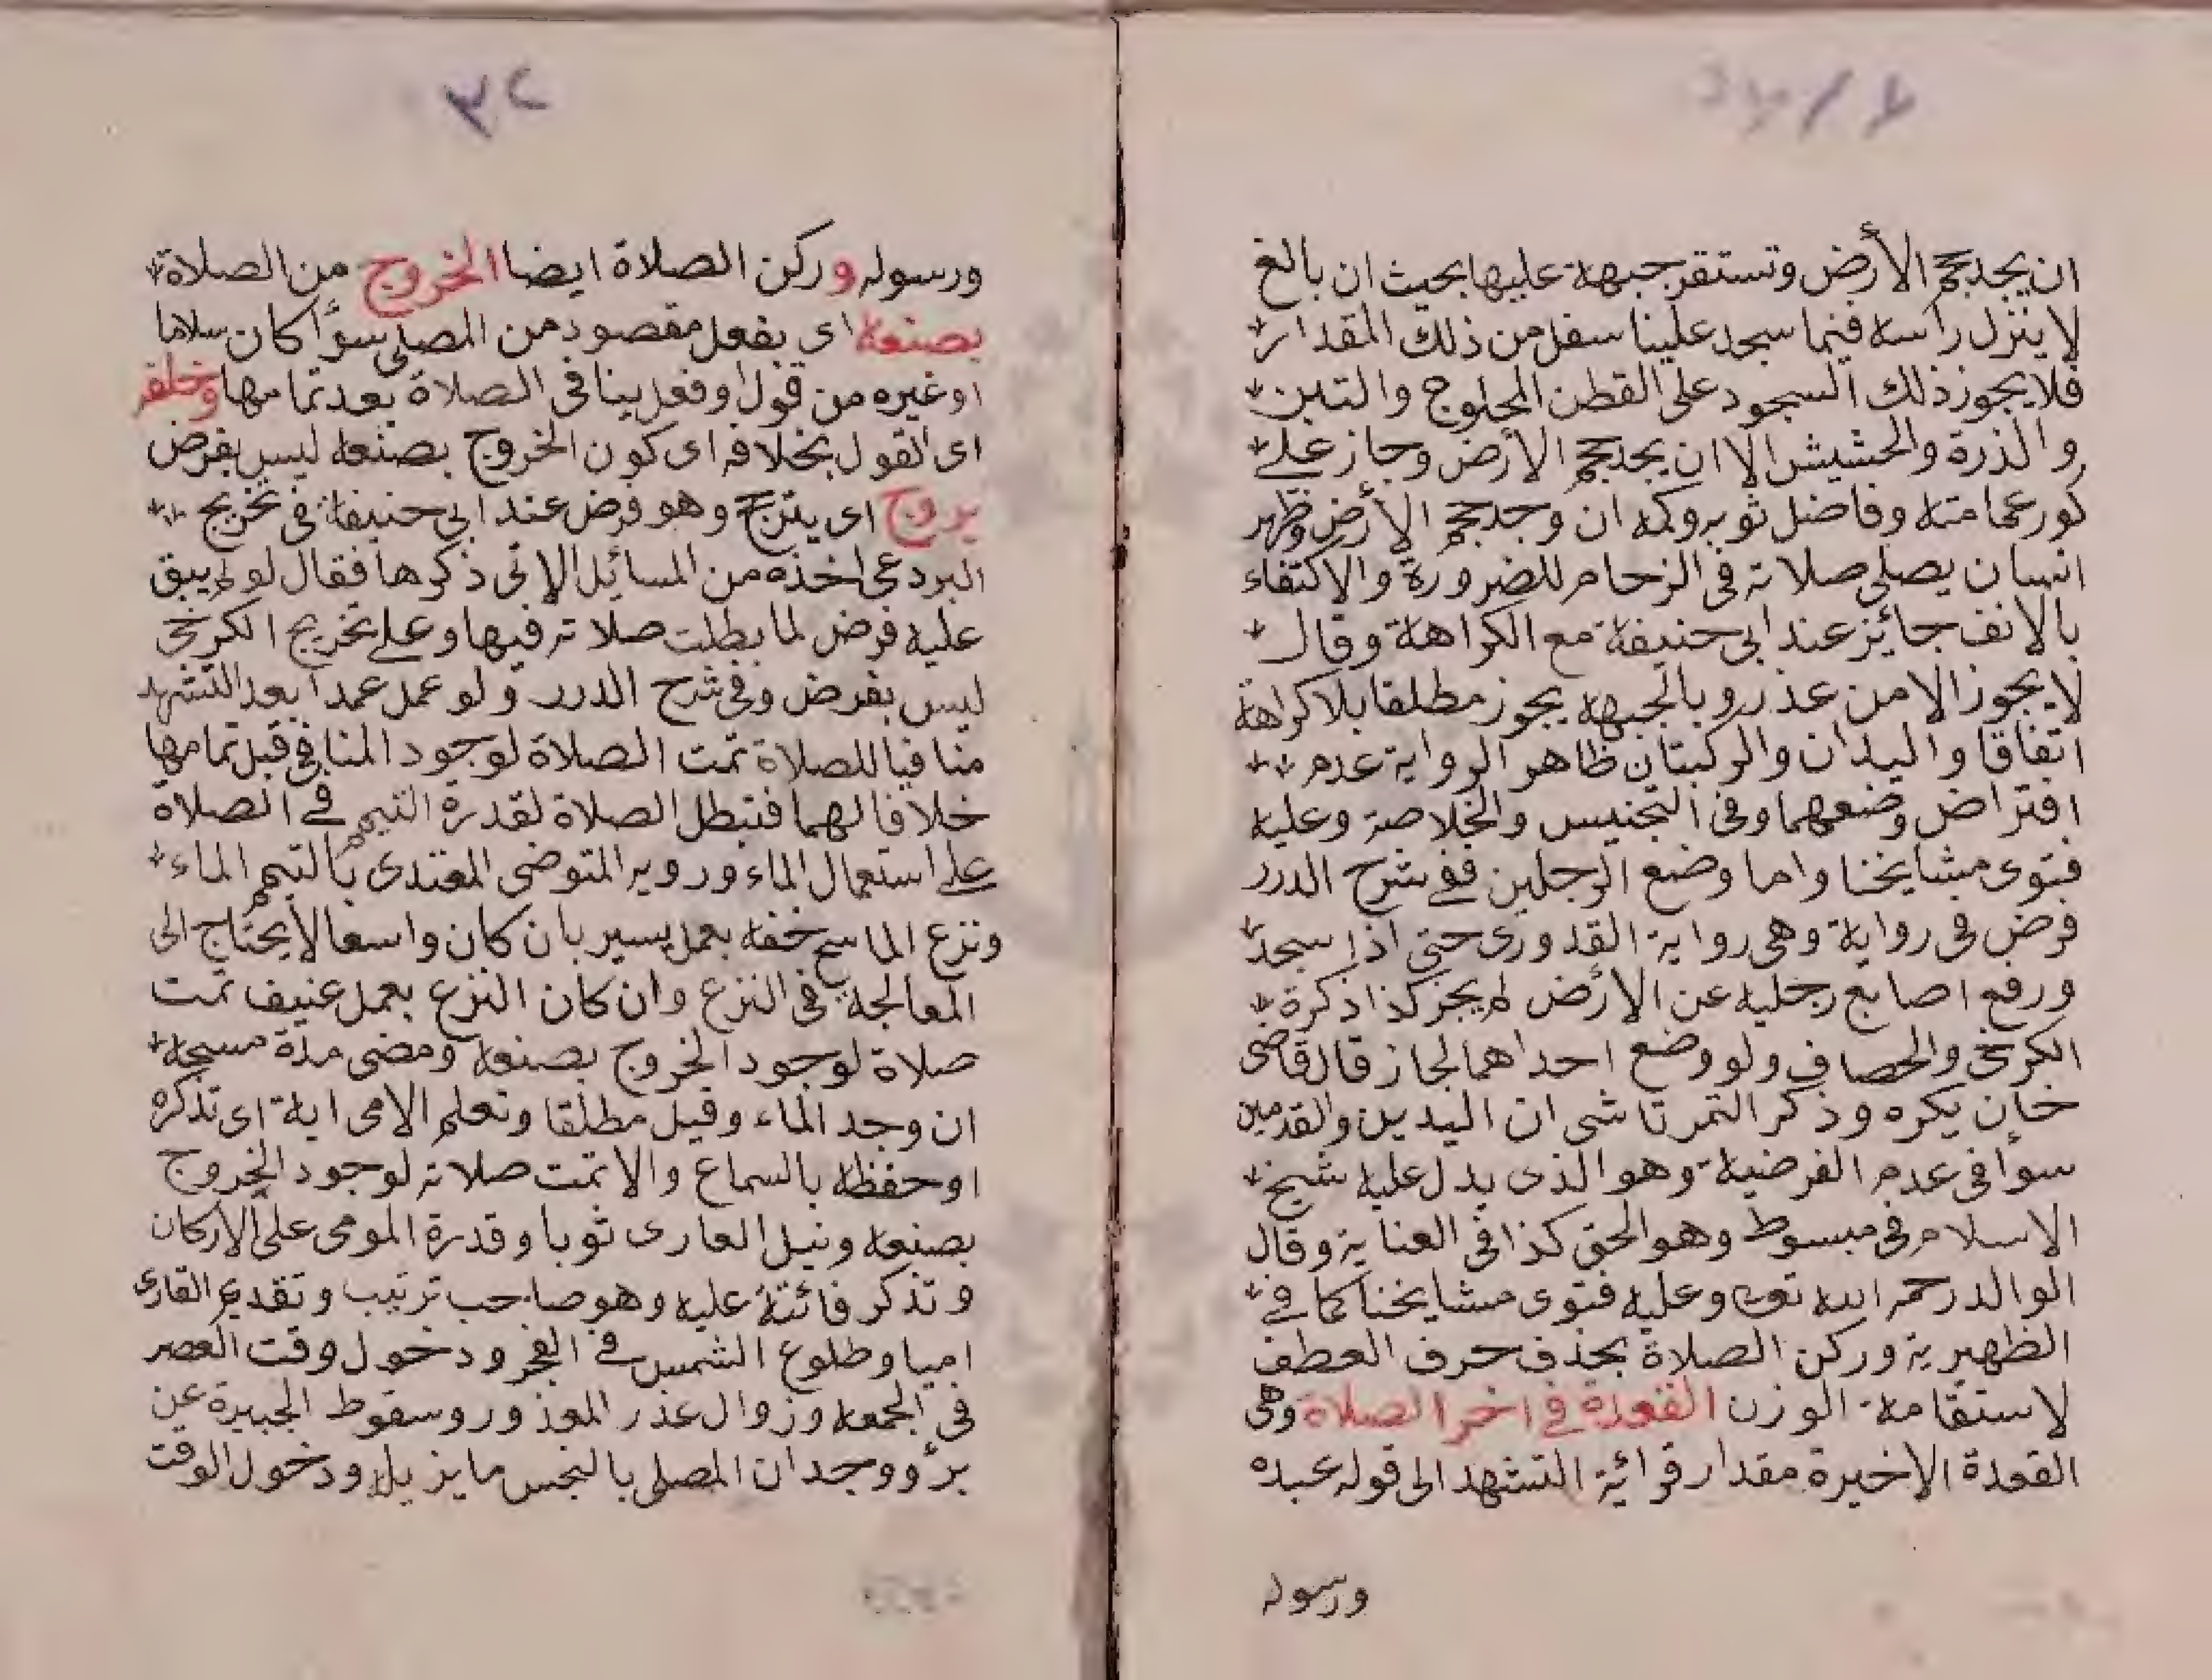 ان يجد حجم الأرض وتستقر جبهة عليها بحيث ان بالغ
لا ينزل راسه فيما سجد علينا سفل من ذلك المقدار
فلا يجوز ذلك السجود على القطن المحلوج والتبن
والذرة والحشيش الا ان يجد حجم الأرض وجاز على
كور عمامته وفاضل ثوبه وكمه ان وجد حجم الأرض وظهر
انسان يصلى صلاته فى الزحام للضرورة والاكتفاء
بالانف جائز عند ابى حنيفة مع الكراهة وقال
لا يجوز الا من عذر وبالجبهة يجوز مطلقا بلا كراهة
اتفاقا واليدان والركبتان ظاهر الرواية عدم
افتراض وضعهما وفى التجنيس والخلاصة وعليه
فتوى مشايخنا واما وضع الرجلين ففى شرح الدرر
فرض فى رواية وهى رواية القدورى حتى اذا سجد
ورفع اصابع رجليه عن الأرض لم يجز كذا ذكرة
الكرخى والحصاف ولو وضع احداهما لجاز قال قاضى
خان يكره وذكر التمرتاشى ان اليدين والقدمين
سوا فى عدم الفرضية وهو الذى يدل عليه شيخ
الاسلام فى مبسوط وهو الحق كذا فى العناية وقال
الوالد رحمه الله تعه وعليه فتوى مشايخنا كما فى
الظهيرية وركن الصلاة بحذف حرف العطف
لاستقامة الوزن القعدة فى اخر الصلاة وهى
القعدة الاخيرة مقدار قرائة التشهد الى قوله عبده
ورسوله
٣٢
ورسوله وركن الصلاة ايضا الخروج من الصلاة
بصنعه اى بفعل مقصود من المصلى سوأ كان سلاما
او غيره من قول او فعل ينافى الصلاة بعد تمامها وخلفه
اى القول بخلافه اى كون الخروج بصنعه ليس بفرض
يروج اى يترجح وهو فرض عند ابى حنيفة فى تخريج
البردعى اخذه من المسائل الاتى ذكرها فقال لو لم يبق
عليه فرض لما بطلت صلاته فيها وعلى تخريج الكرخى
ليس بفرض وفى شرح الدرر ولو عمل عمدا بعد التشهد
منافيا للصلاة تمت الصلاة لوجود المنافى قبل تمامها
خلافا لهما فتبطل الصلاة لقدرة التيمم فى الصلاة
على استعمال الماء ورويه المتوضى المقتدى بالتيمم الماء
ونزع الماسح خفه بعمل يسير بان كان واسعا لا يحتاج الى
المعالجة فى النزع وان كان النزع بعمل عنيف تمت
صلاة لوجود الخروج بصنعه ومضى مدة مسحه
ان وجد الماء وقيل مطلقا وتعلم الامى اية اى تذكره
او حفظه بالسماع والا تمت صلاته لوجود الخروج
بصنعه ونيل العارى ثوبا وقدرة المومى على الاركان
وتذكر فائتة عليه وهو صاحب ترتيب وتقديم القارى
اميا وطلوع الشمس فى الفجر ودخول وقت العصر
فى الجمعه وزوال عذر المعذور وسقوط الجبيرة عن
برؤ ووجدان المصلى بالنجس ما يزيله ودخول الوقت